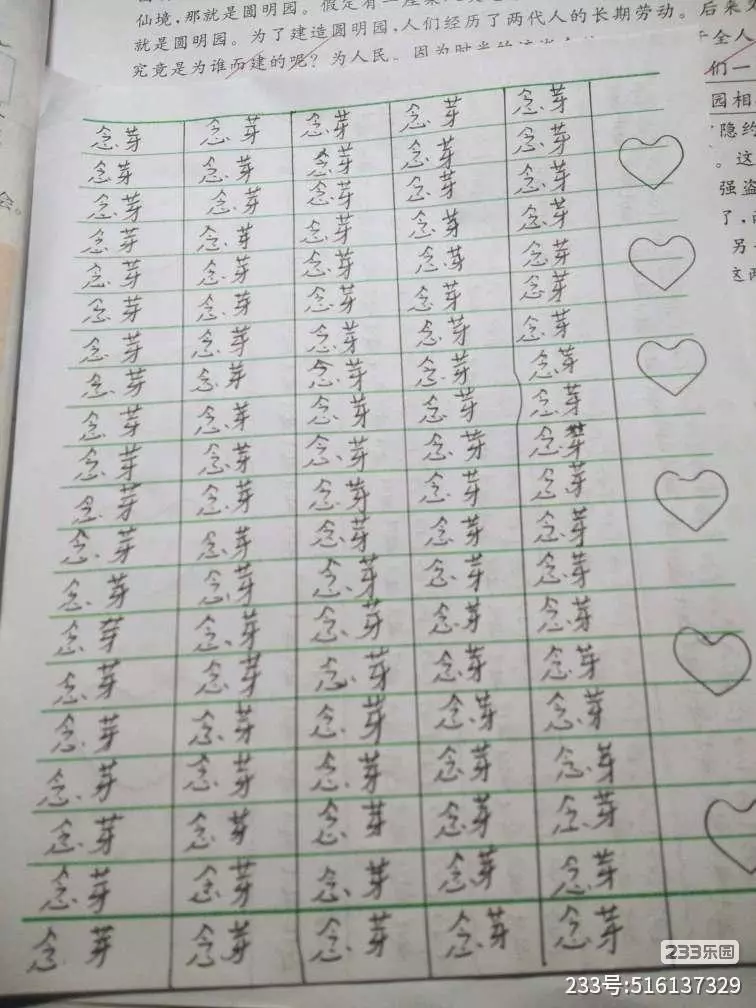 仙境,那就是圆明园。假定有一座
就是圆明园。为了建造圆明园,人们经历了两代人的长期劳动。后来又
究竟是为谁而建的呢?为人民。因为时 全人
们一
园相
隐约
。这
强盗
了,
另
这两
念芽 念芽 念芽 念芽 念芽
念芽 念芽 念芽 念芽 念芽
念芽 念芽 念芽 念芽 念芽
念芽 念芽 念芽 念芽 念芽
念芽 念芽 念芽 念芽 念芽
念芽 念芽 念芽 念芽 念芽
念芽 念芽 念芽 念芽 念芽
念芽 念芽 念芽 念芽 念芽
念芽 念芽 念芽 念芽 念芽
念芽 念芽 念芽 念芽 念芽
念芽 念芽 念芽 念芽 念芽
念芽 念芽 念芽 念芽 念芽
念芽 念芽 念芽 念芽 念芽
念芽 念芽 念芽 念芽 念芽
念芽 念芽 念芽 念芽 念芽
念芽 念芽 念芽 念芽 念芽
念芽 念芽 念芽 念芽 念芽
念芽 念芽 念芽 念芽 念芽
念芽 念芽 念芽 念芽 念芽
念芽 念芽 念芽 念芽 念芽
233乐园
233号:516137329